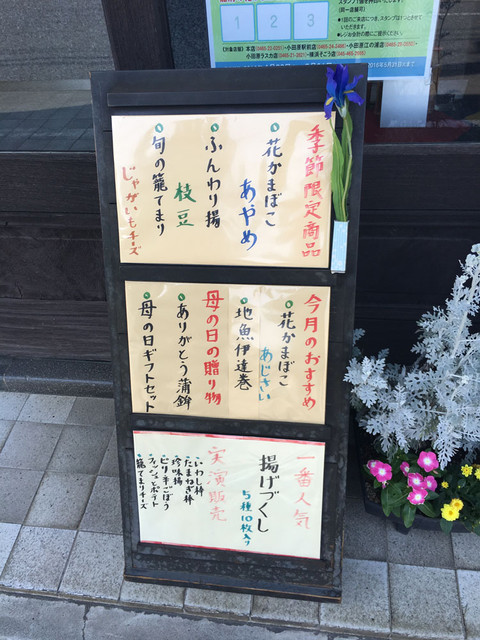 1 2 3
季節限定商品
花かまぼこ
あやめ
ふんわり揚
枝豆
旬の籠てまり
じゃがいもチーズ
今月のおすすめ
花かまぼこ
あじさい
地魚伊達巻
母の日の贈り物
ありがとう蒲鉾
母の日ギフトセット
一番人気
揚げづくし
5種10枚入り
実演販売
いわし棒
たまねぎ棒
珍味揚
ピリ辛ごぼう
フィッシュポテト
籠てまりチーズ